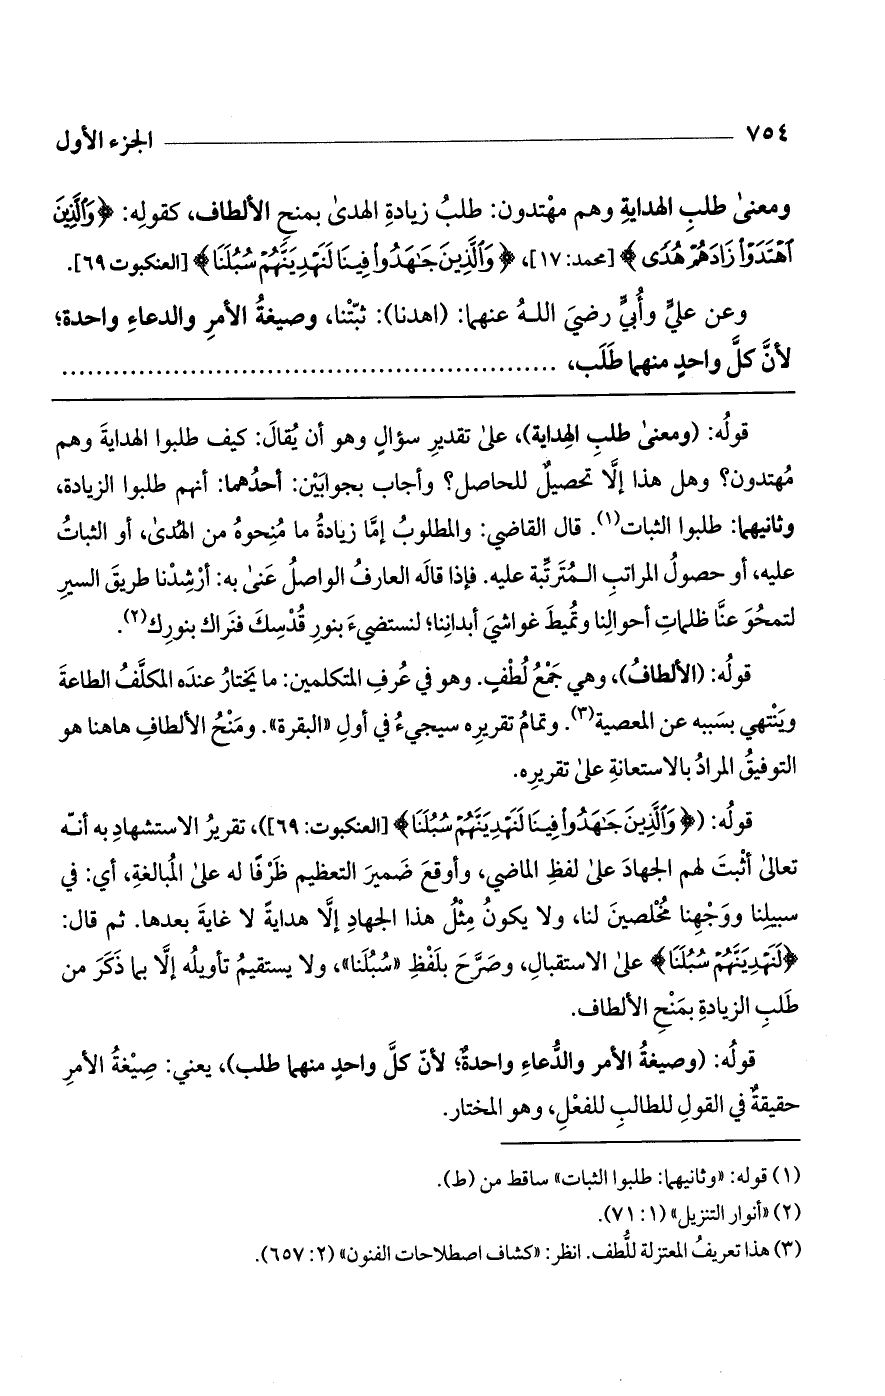 ٧٥٤ الجزء الأول
ومعنىٰ طلبِ الهدايةِ وهم مهْتدون: طلبُ زيادةِ الهدىٰ بمنحِ الألطاف، كقولِه: ﴿وَٱلَّذِينَ
ٱهْتَدَوْا۟ زَادَهُمْ هُدًى﴾ [محمد: ١٧]، ﴿وَٱلَّذِينَ جَـٰهَدُوا۟ فِينَا لَنَهْدِيَنَّهُمْ سُبُلَنَا﴾ [العنكبوت ٦٩].
وعن عليٍّ وأُبيٍّ رضيَ اللـهُ عنهما: (اهدنا): ثبّتْنا، وصيغةُ الأمرِ والدعاءِ واحدة؛
لأنَّ كلَّ واحدٍ منهما طَلَب، ........................................................
قولُه: (ومعنىٰ طلبِ الهِداية)، علىٰ تقديرِ سؤالٍ وهو أن يُقالَ: كيف طلبوا الهدايةَ وهم
مُهتدون؟ وهل هذا إلَّا تحصيلٌ للحاصل؟ وأجاب بجوابَيْن: أحدُهما: أنهم طلبوا الزيادة،
وثانيهما: طلبوا الثبات(١). قال القاضي: والمطلوبُ إمَّا زيادةُ ما مُنِحوهُ من الهُدىٰ، أو الثباتُ
عليه، أو حصولُ المراتبِ الـمُتَرَتِّبة عليه. فإذا قالَه العارفُ الواصلُ عَنىٰ به: أرْشِدْنا طريقَ السيرِ
لتمحُوَ عنَّا ظلماتِ أحوالِنا وتُميطَ غواشيَ أبدانِنا؛ لنستضيءَ بنورِ قُدْسِكَ فنَراك بنورِك(٢).
قولُه: (الألطافُ)، وهي جَمْعُ لُطْفٍ. وهو في عُرفِ المتكلمين: ما يَختارُ عندَه المكلَّفُ الطاعةَ
ويَنْتهي بسَببه عن المعصية(٣). وتمامُ تقريرِه سيجيءُ في أولِ «البقرة». ومَنْحُ الألطافِ هاهنا هو
التوفيقُ المرادُ بالاستعانةِ علىٰ تقريرِه.
قولُه: (﴿وَٱلَّذِينَ جَـٰهَدُوا۟ فِينَا لَنَهْدِيَنَّهُمْ سُبُلَنَا﴾ [العنكبوت: ٦٩])، تقريرُ الاستشهادِ به أنـّه
تعالىٰ أثْبتَ لهم الجهادَ علىٰ لفظِ الماضي، وأوقعَ ضَميرَ التعظيم ظَرْفًا له علىٰ المُبالغةِ، أي: في
سبيلِنا ووَجْهِنا مُخْلصينَ لنا، ولا يكونُ مِثْلُ هذا الجهادِ إلَّا هدايةً لا غايةَ بعدها. ثم قال:
﴿لَنَهْدِيَنَّهُمْ سُبُلَنَا﴾ علىٰ الاستقبالِ، وصَرَّحَ بلَفْظِ «سُبُلَنا»، ولا يستقيمُ تأويلُه إلَّا بما ذَكَرَ من
طَلَبِ الزيادةِ بمَنْحِ الألطاف.
قولُه: (وصيغةُ الأمر والدُّعاءِ واحدةٌ؛ لأنّ كلَّ واحدٍ منهما طلب)، يعني: صِيْغةُ الأمرِ
حقيقةٌ في القولِ للطالبِ للفعْلِ، وهو المختار.
(١) قوله: «وثانيهما: طلبوا الثبات» ساقط من (ط).
(٢) «أنوار التنزيل» (١: ٧١).
(٣) هذا تعريفُ المعتزلة للُّطف. انظر: «كشاف اصطلاحات الفنون» (٢: ٦٥٧).